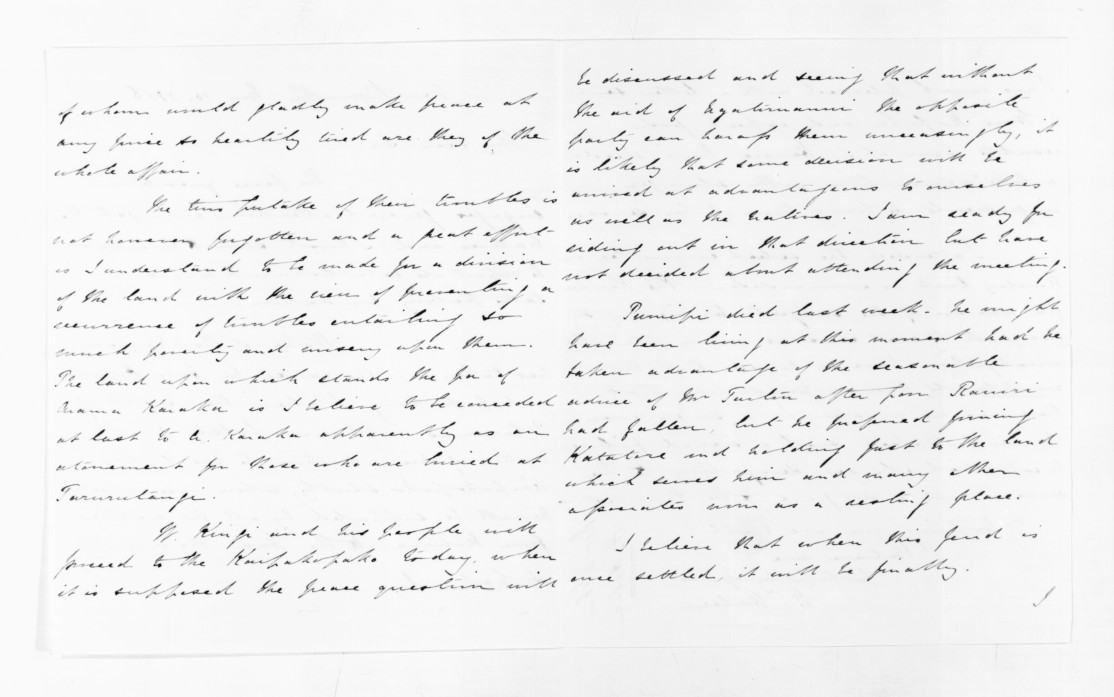 of whom would gladly make peace at
any price so heartily tired are they of the
whole affair.
The first stake of their troubles is
not however forgotten and a great effort
is I understand to be made for a division
of the land with the view of preventing a
recurrence of troubles entailing so
much poverty and misery upon them.
The land upon which stands the pa of
Arama Karaka is I believe to be conceded
at last to A. Karaka apparently as an
atonement for those who are buried at
Tarurutangi.
W. Kingi and his people will
proceed to the Kaipakopako today, when
it is supposed the peace question will
be discussed and seeing that without
the aid of Ngatiruanui the opposite
party can harass them unceasingly, it
is likely that some decision will be
arrived at advantageous to ourselves
as well as the natives. I am ready for
riding out in that direction but have
not decided about attending the meeting.
died last week. he might
have been living at this moment had he
taken advantage of the seasonable
advice of Mr Turton after poor Rawiri
had fallen, but he preferred joining
Katatore and holding fast to the land
which serves him and many other
associates now as a resting place.
I believe that when this feud is
once settled, it will be finally.
I